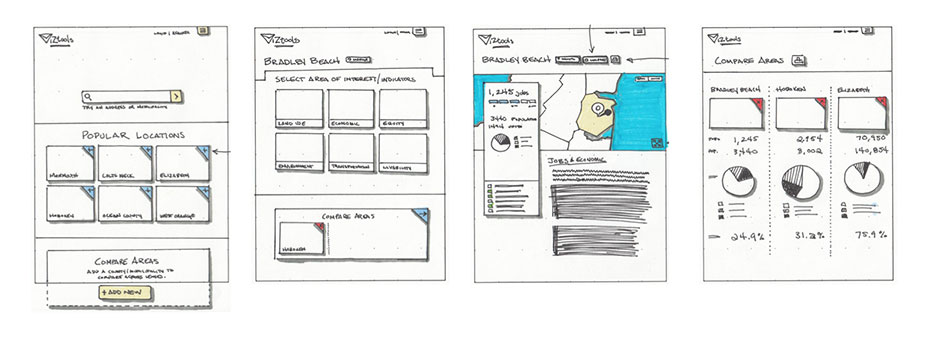 Viztools
TRY AN ADDRESS OR MUNICIPALITY
POPULAR LOCATIONS
MONMOUTH
COLTS NECK
ELIZABETH
HOBOKEN
OCEAN COUNTY
WEST ORANGE
COMPARE AREAS
ADD A COUNTY/MUNICIPALITY TO
COMPARE ACROSS
+ ADD NEW
Viztools
BRADLEY BEACH
SELECT AREA OF INTEREST/INDICATORS
LAND USE
ECONOMIC
EQUITY
ENVIRONMENT
TRANSPORTATION
LIVABILITY
COMPARE AREAS
HOBOKEN
Viztools
BRADLEY BEACH
1,245 jobs
JOBS & ECONOMIC
Viztools
COMPARE AREAS
BRADLEY BEACH
HOBOKEN
ELIZABETH
1,245
2,954
70,950
3,440
8,002
140,854
24.9%
31.2%
75.9%